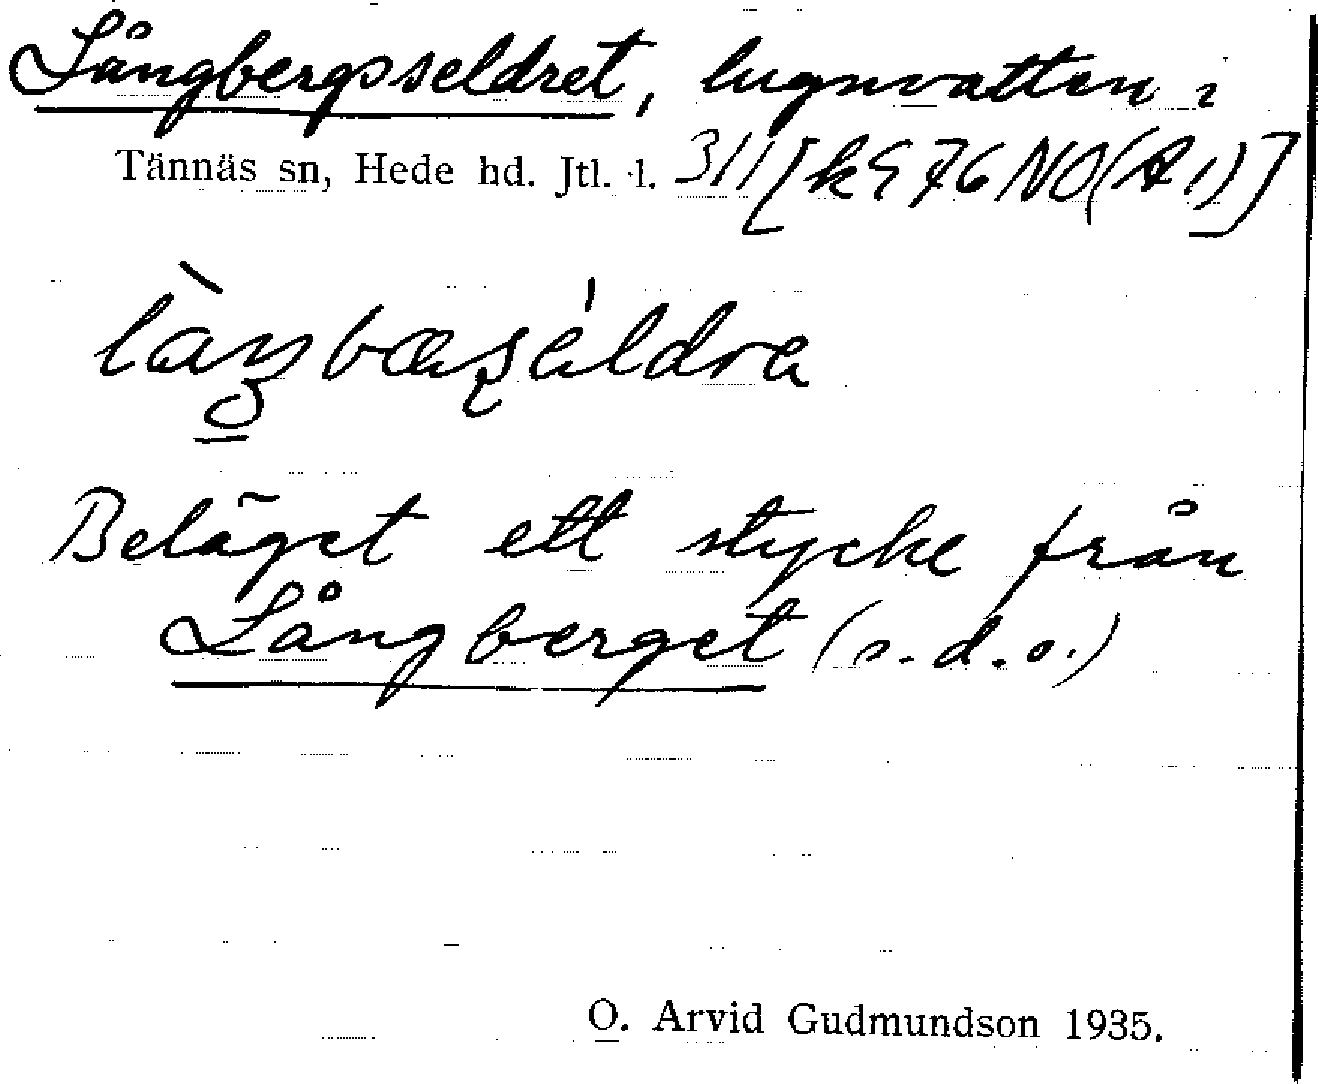 Långbergsseldret, lugnvatten i
Tännäs sn, Hede hd. Jtl. l. 311 [k 976 NO (A 1)]
Beläget ett stycke från
Långberget (s.d.o.)
O. Arvid Gudmundson 1935.